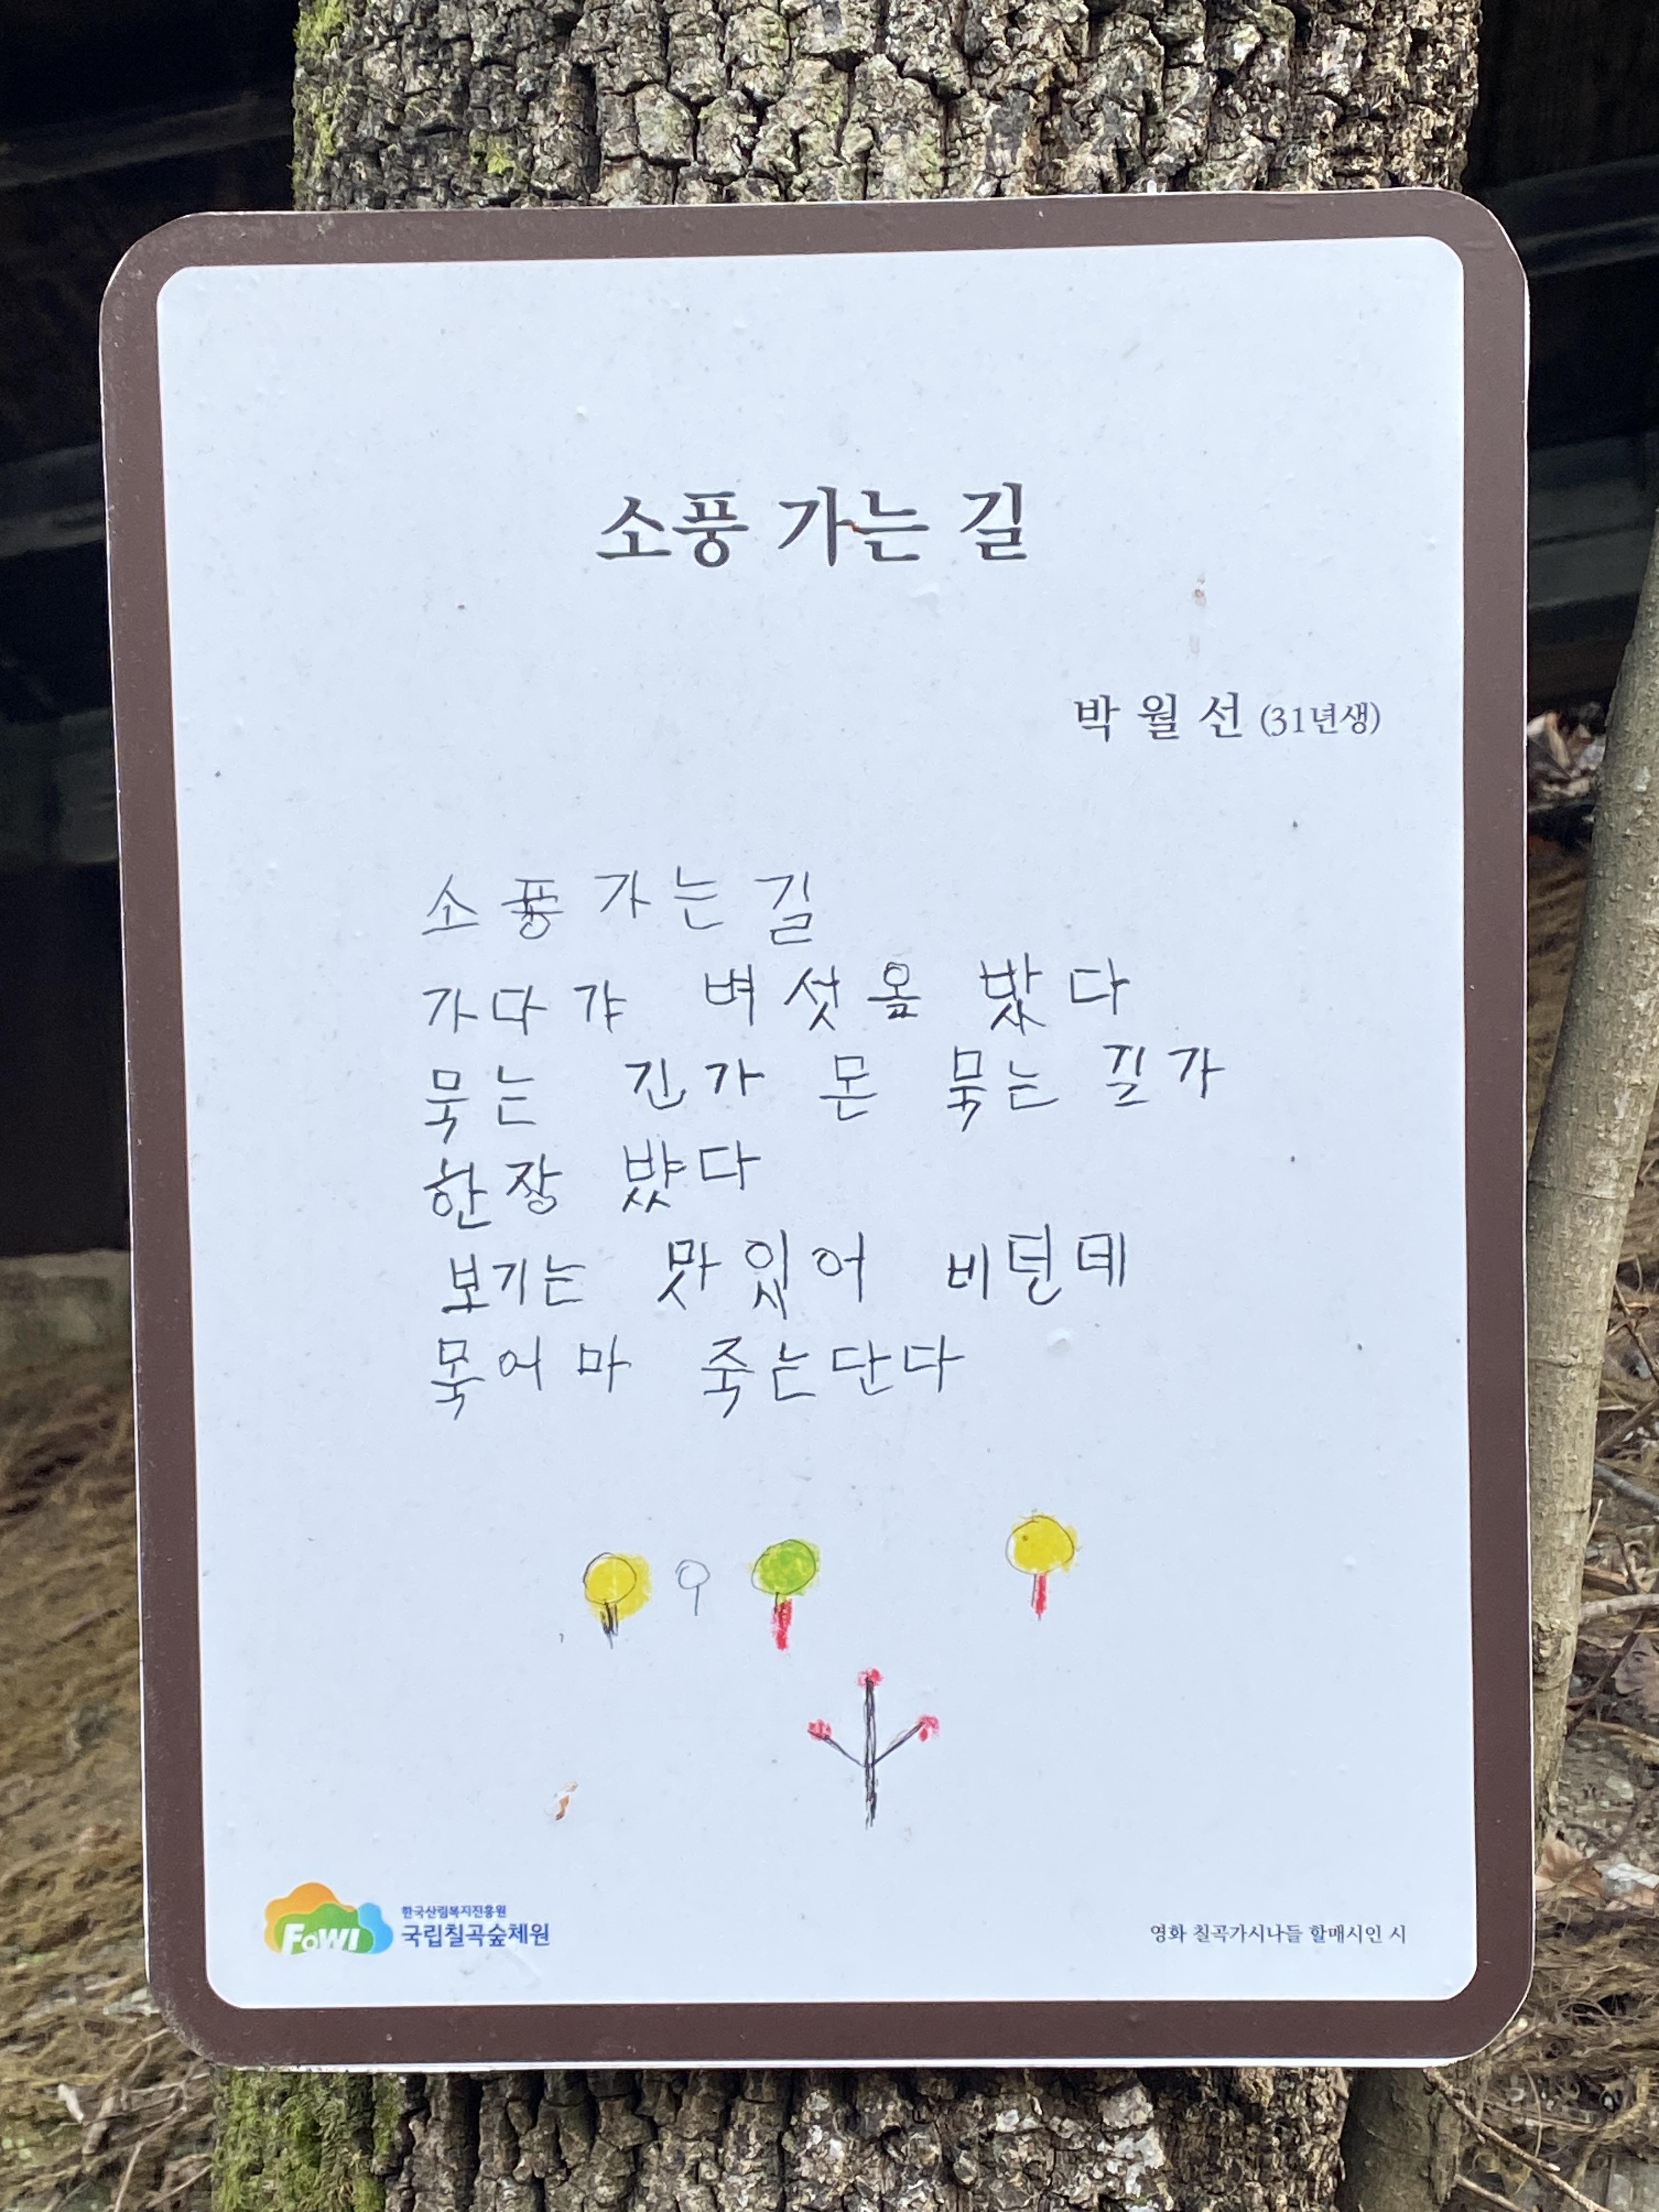 소풍 가는 길
박 월 선 (31년생)
소풍 가는 길
가다갸 벼섯을 밨다
묵는 긴가 몬 묵는 긴가
한장 뱠다
보기는 맛있어 비던데
묵어마 죽는단다
FoWI 한국산림복지진흥원
국립칠곡숲체원
영화 칠곡가시나들 할매시인 시